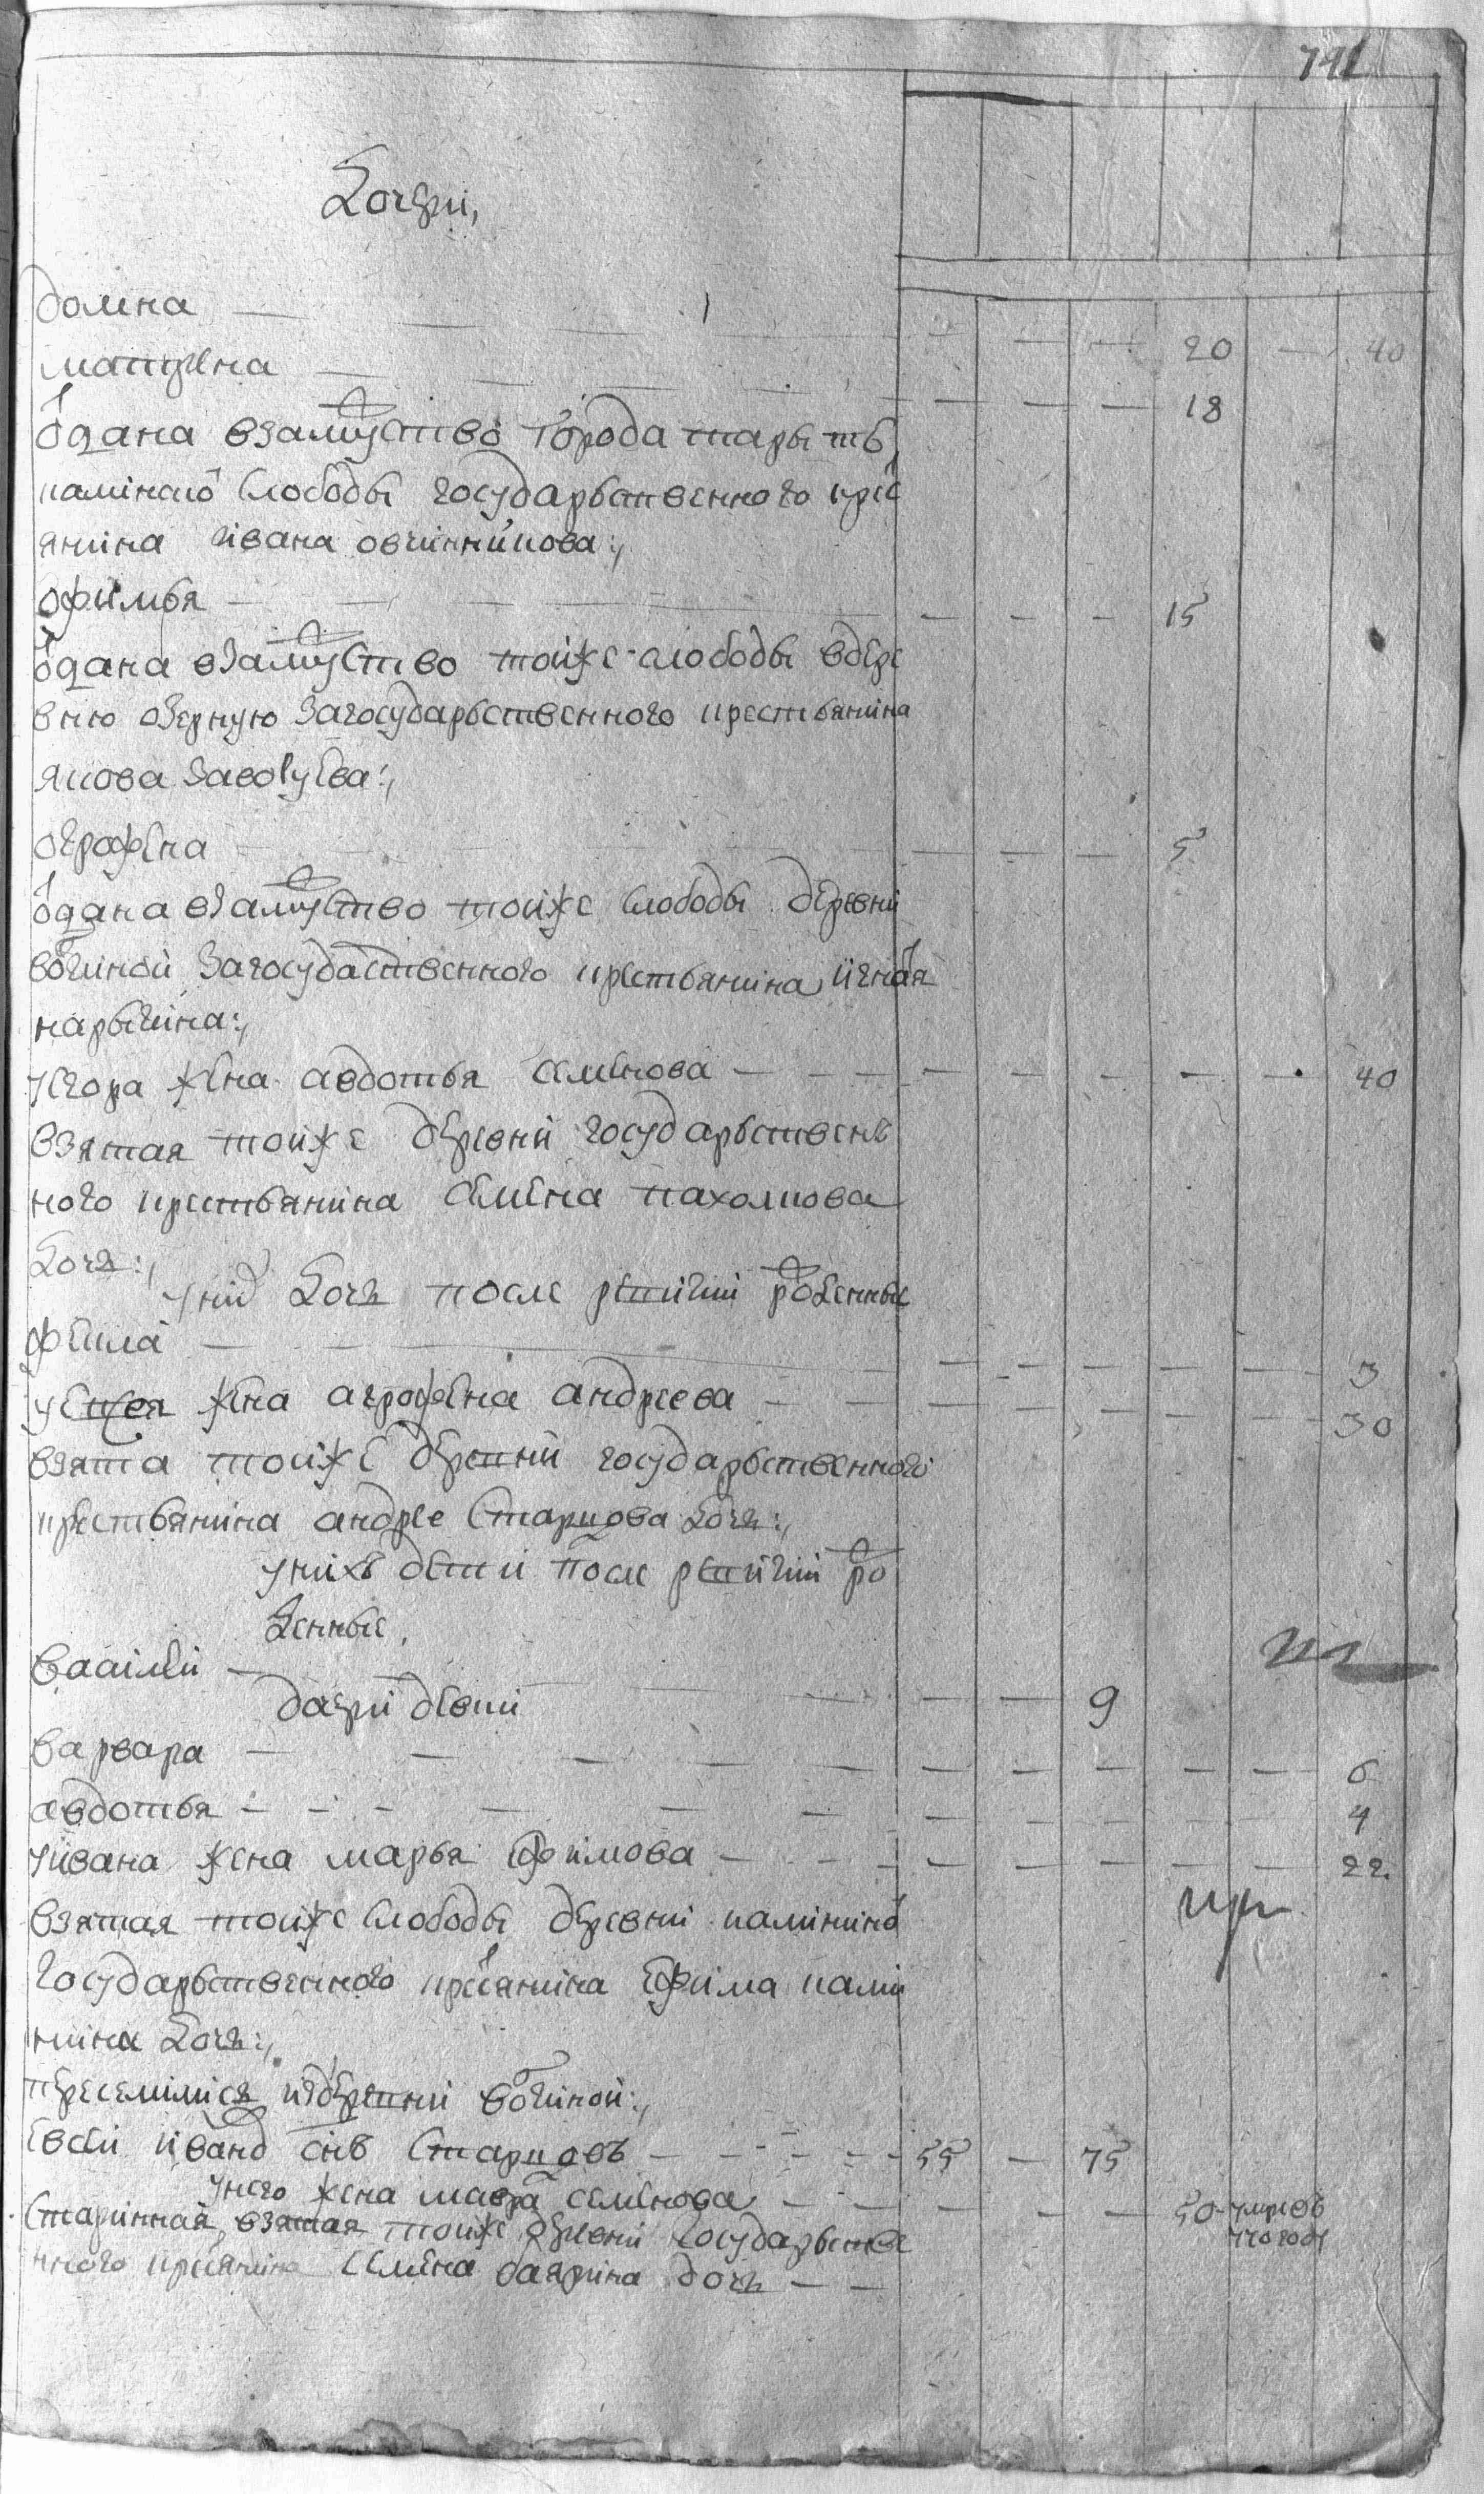 791
Дочери,
домна — — — — 20 — 40
матрена — — — — 18
одана взамуство города тары тю
калинской слободы государьственного крес
янина ивана овчинникова:,
офимья — — — — 15
одана взамуство тойже слободы вдере
вню озерную загосударьственного крестьянина
якова
огрофена — — — — 5
одана взамуство тойже слободы деревни
вочиной загосудаственного крестьянина игнатя
нарычина:,
уегора жена авдотья семенова — — — 40
взятая тойже деревни государьствень
ного крестьянина семена пахомова
дочь:,
уних дочь после ревизии роженные
фекла — — — 3
жена агрофена андреева — — — 30
взята тойже деревни государьственного
крестьянина андрее старцова дочь:,
унихъ дети после ревизии ро
женные,
василей — — — 9
дочери девки
варвара — — — 6
авдотья — — — 4
уивана жена марья ефимова — — — 22
взятая тойже слободы деревни калинино
государьственного кресянина ефима кали
нина дочь:,
переселился издеревни вочиной:,
евсей иванов снъ старцовъ — — — 55 — 75
унего жена мавра семенова — — — 50 умре въ
старинная, взятая тойже деревни государьстве
нного кресянина семена баярина дочь — —